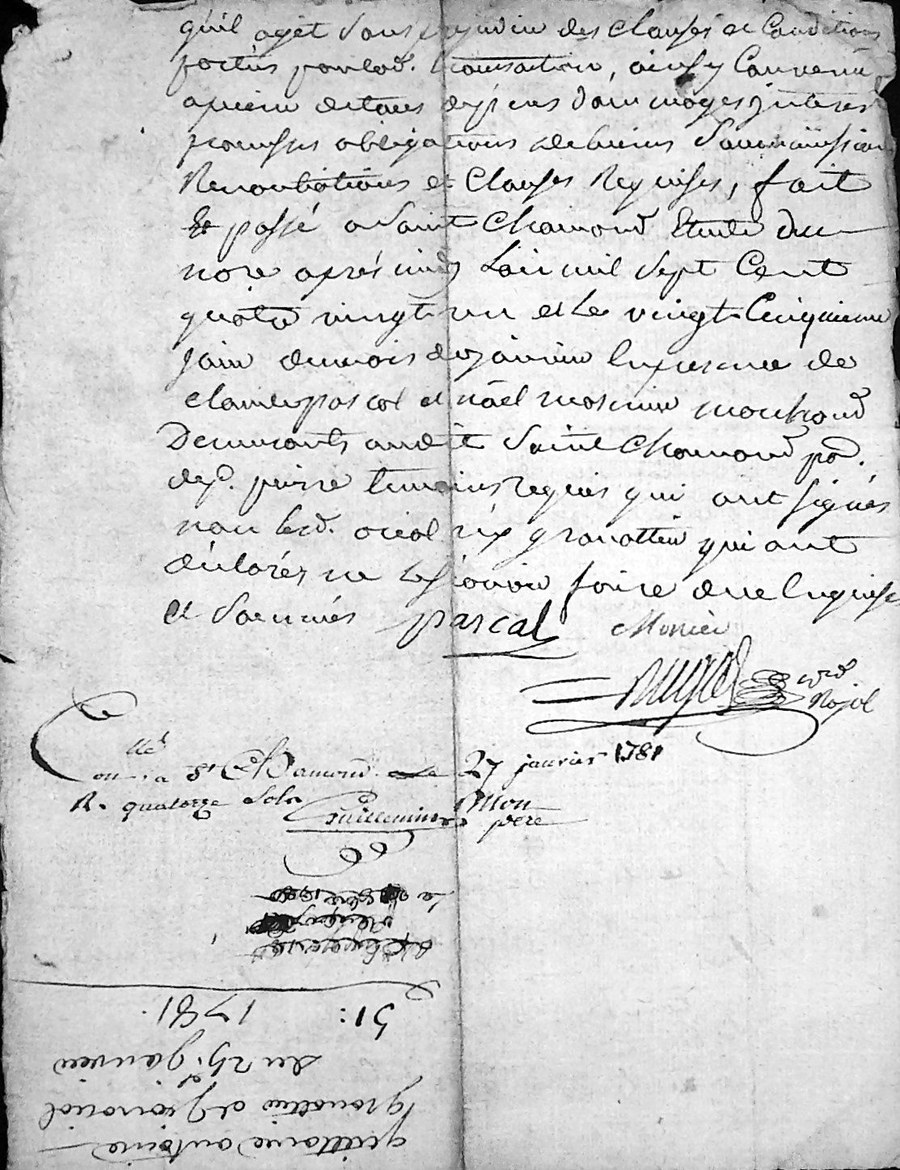 qu'il agit sans prejudice des clauses et Conditions
portés par lad. transaction, ainsy Convenu
a peine de tous depens dommages interes
promesses obligations de biens Soumission
Renontiations et Clauses Requises, fait
et passé a Saint Chamond Etude du
nore aprés midy L'an mil Sept Cent
quatre vingt un et le vingt Cinquieme
Jour du mois de janvier En presence de
claude pascal et noël mosnier marchand
Demeurants audit Saint Chamond par.
de St. pierre temoins requis qui ont signés
non led. oriol ny granottier qui ont
déclarés ne le sçavoir faire de ce Enquis
et Sommés pascal Monier
nore
Rojol
Conllé a St Chamond le 27 janvier 1781
R. quatorze sols Guillemin Mon
pere
quittance antoine
granottier et oriol
du 25. janvier
1781.
51: